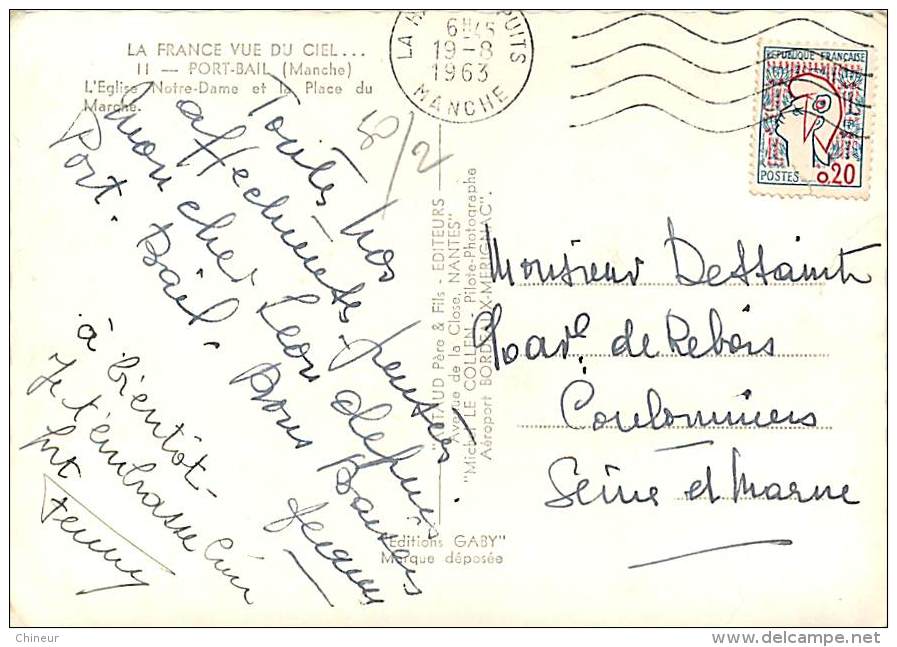 LA FRANCE VUE DU CIEL...
11 — PORT-BAIL (Manche)
L'Eglise Notre-Dame et la Place du
Marché.
6H45
19-8
1963
MANCHE
PUITS
REPUBLIQUE FRANÇAISE
POSTES 0,20
50/2
Toutes nos
affectueuses pensées
mon cher Léon depuis
Port. Bail.
à bientôt-
Je t'embrasse
Monsieur
de Rebais
Coulommiers
Seine et Marne
Père & Fils - EDITEURS
Avenue de la Close, NANTES"
LE COLLEN - Pilote-Photographe
Aéroport BORDEAUX-MERIGNAC".
"Editions GABY"
Marque déposée
Chineur
delcampe.net